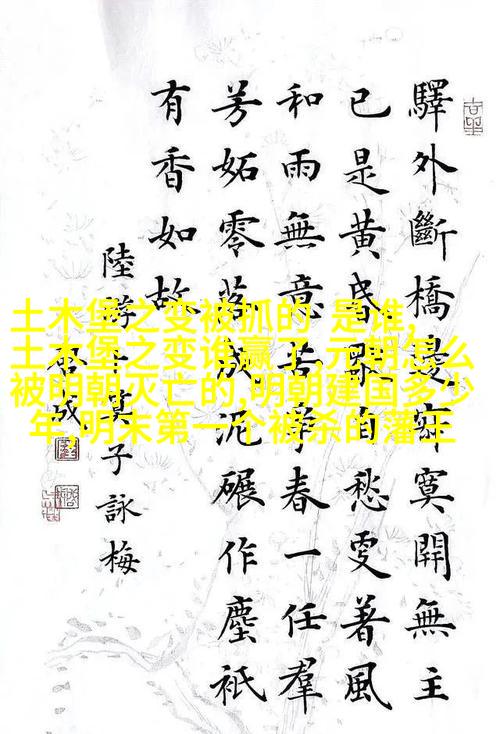 驛外斷橋邊寂寞開無主
已是黃昏獨自愁更著風
和雨無意苦爭春一任羣
芳妬零落成泥碾作塵衹
有香如故
陸游卜算子詠梅
成
土木堡之变被抓的 是谁,
土木堡之变谁赢了,元朝怎么
被明朝灭亡的,明朝建国多少
年,明末第一个被杀的藩王